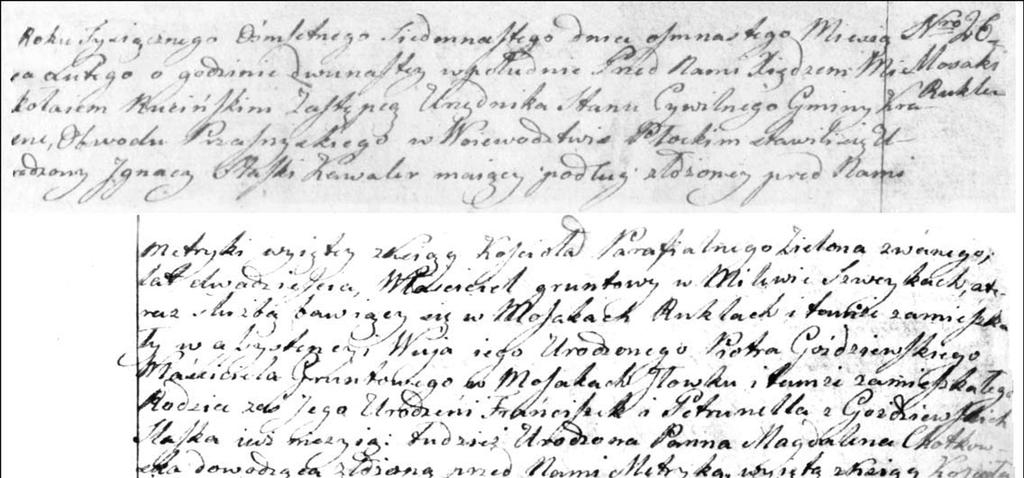 Roku Tysiącznego Ośmsetnego Siedemnastego dnia osmnastego Miesią
ca Lutego o godzinie dwunastey w południe Przed Nami Xiędzem Mi
kołaiem Rusińskim Zastępcą Urzędnika Stanu Cywilnego Gminy Kra
Obwodu Przasnyskiego w Woiewodztwie Płockim stawili się U-
rodzony Jgnacy Kawaler maiący podług złożoney przed Nami
Nro 26
Mosaki
Rukle
Metryki wyiętey z Xiąg Kościoła Parafialnego Zielona zwanego,
lat dwadzieścia, Właściciel gruntowy w Milewie Szweykach, a te-
raz służbą bawiący się w Mosakach Ruklach i tamże zamieszka
ły w assystencyi Wuja iego Urodzonego Piotra Goździewskiego
Właściciela Gruntowego w Mosakach i tamże zamieszkałego
Rodzice zaś Jego Urodzeni Franciszek i Petrunella z Goździewskich
tudzież Urodzona Panna Magdalena Chotkow
ska dowodząca złożoną przed Nami Metryką wyiętą z Xiąg Kościoła